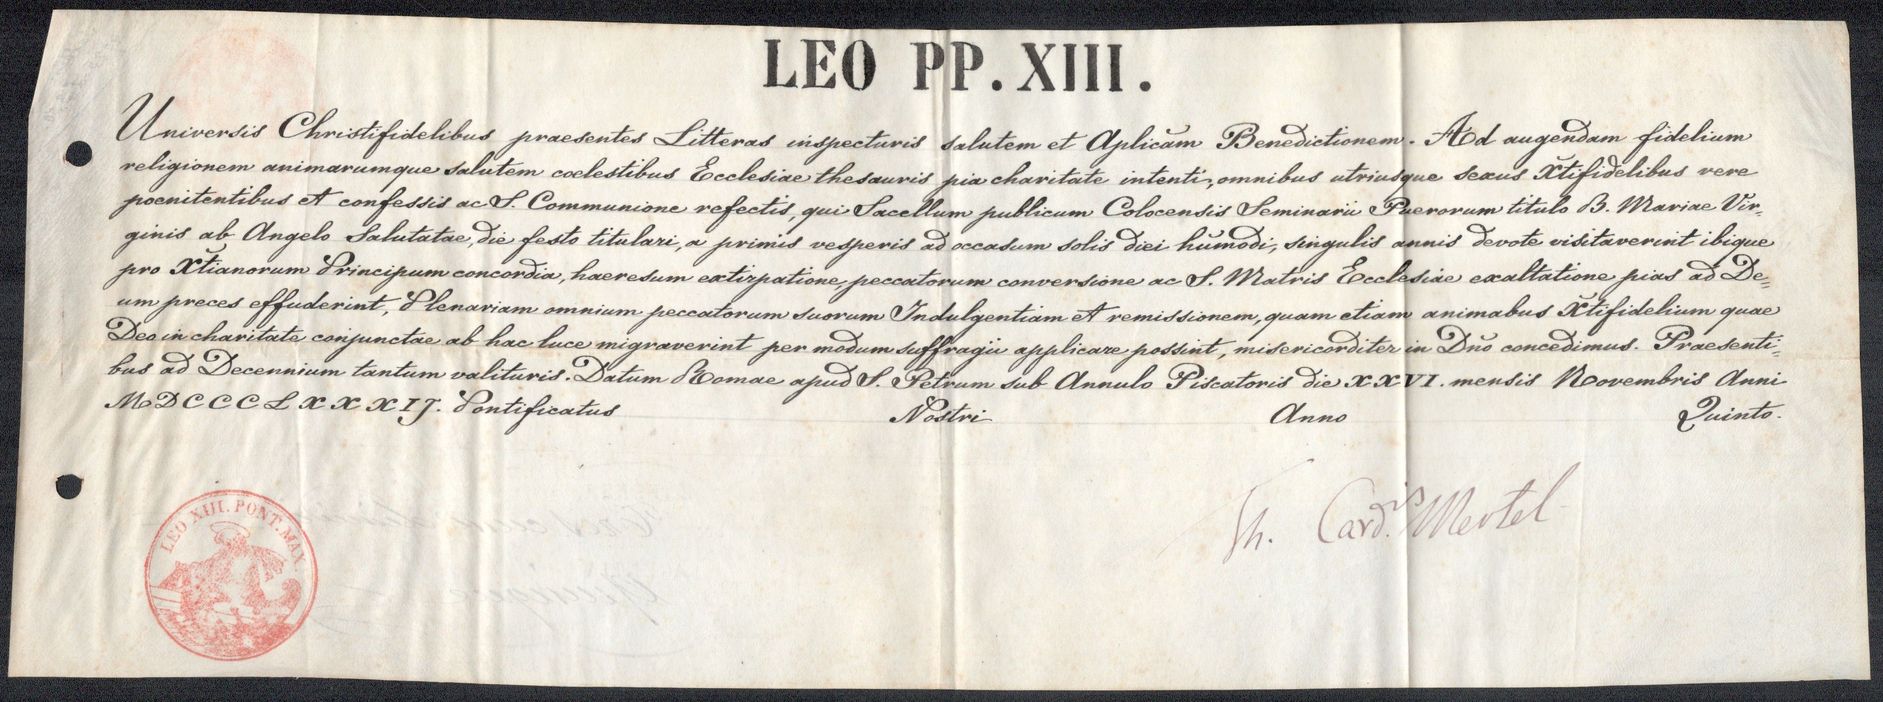 LEO PP. XIII.
Universis Christifidelibus praesentes Litteras inspecturis salutem et Aplicam Benedictionem. Ad augendam fidelium
religionem animarumque salutem coelestibus Ecclesiae thesauris pia charitate intenti, omnibus utriusque sexus Xtifidelibus vere
poenitentibus et confessis ac S. Communione refectis, qui Sacellum publicum Colocensis Seminarii Puerorum titulo B. Mariae Vir=
ginis ab Angelo Salutatae, die festo titulari, a primis vesperis ad occasum solis diei hũmodi, singulis annis devote visitaverint ibique
pro Xtianorum Principum concordia, haeresum extirpatione, peccatorum conversione ac S. Matris Ecclesiae exaltatione pias ad De=
um preces effuderint, Plenariam omnium peccatorum suorum Indulgentiam et remissionem, quam etiam animabus Xtifidelium quae
Deo in charitate conjunctae ab hac luce migraverint per modum suffragii applicare possint, misericorditer in Dño concedimus. Praesenti=
bus ad Decennium tantum valituris. Datum Romae apud S. Petrum sub Annulo Piscatoris die XXVI. mensis Novembris Anni
MDCCCLXXXIJ. Pontificatus Nostri Anno Quinto.
Th. Card.is Mertel
LEO XIII. PONT. MAX.